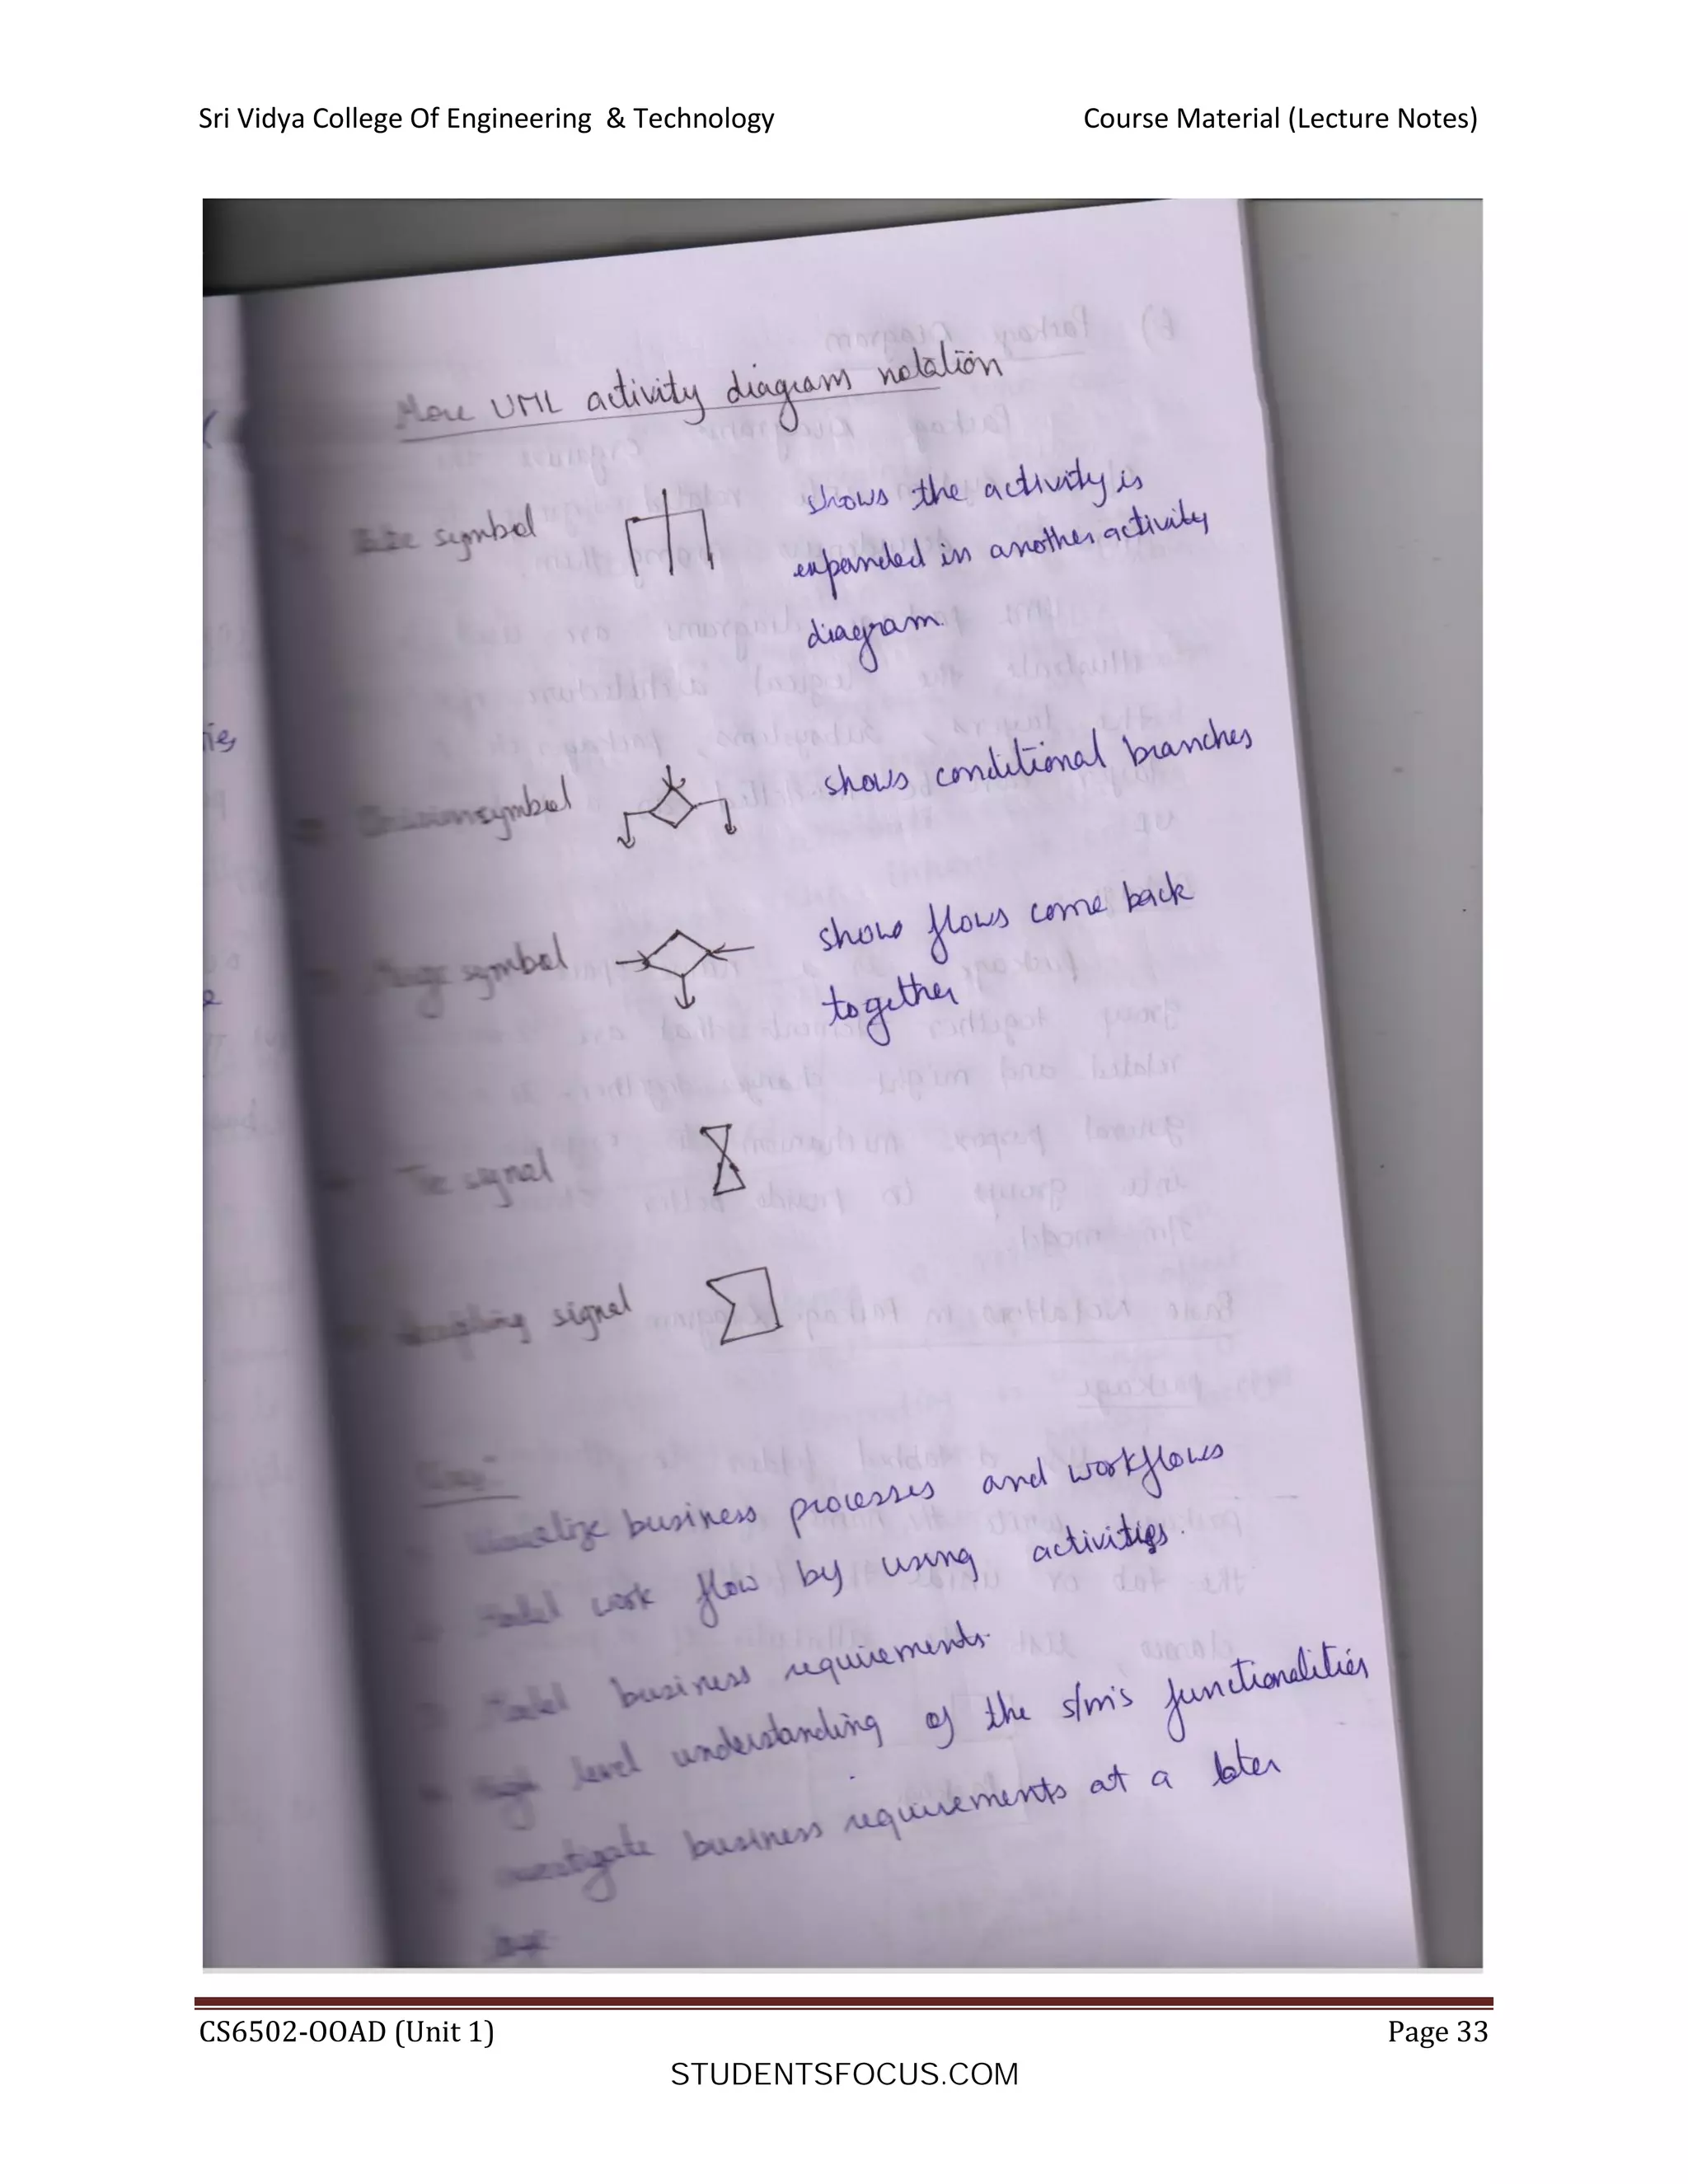 Sri Vidya College Of Engineering & Technology Course Material (Lecture Notes)
More UML activity diagram notation
symbol shows the activity is
expanded in another activity
diagram.
Decision symbol shows conditional branches
Merge symbol show flows come back
together
signal
signal
business processes and workflows
Model work flow by using activities.
Model business requirements.
High level understanding of the s/m's functionalities
investigate business requirements at a later
CS6502-OOAD (Unit 1) Page 33
STUDENTSFOCUS.COM